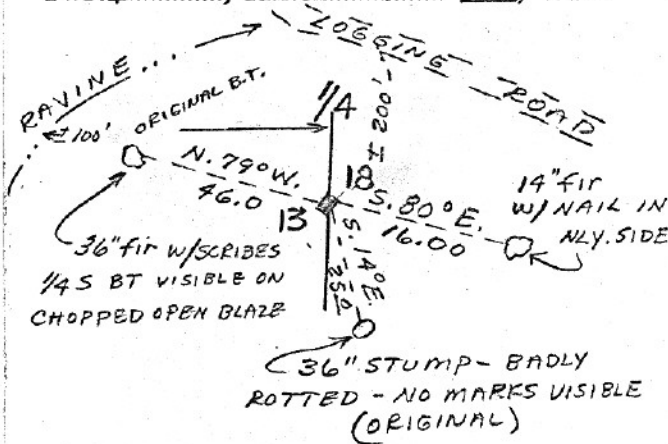 LOGGING ROAD
RAVINE...
± 100'
ORIGINAL B.T.
1/4
± 200'
N. 79° W.
46.0
18
13
S. 80° E.
16.00
S. 14° E.
35.0
14" fir
W/ NAIL IN
NLY. SIDE
36" fir W/SCRIBES
1/4 S BT VISIBLE ON
CHOPPED OPEN BLAZE
36" STUMP - BADLY
ROTTED - NO MARKS VISIBLE
(ORIGINAL)